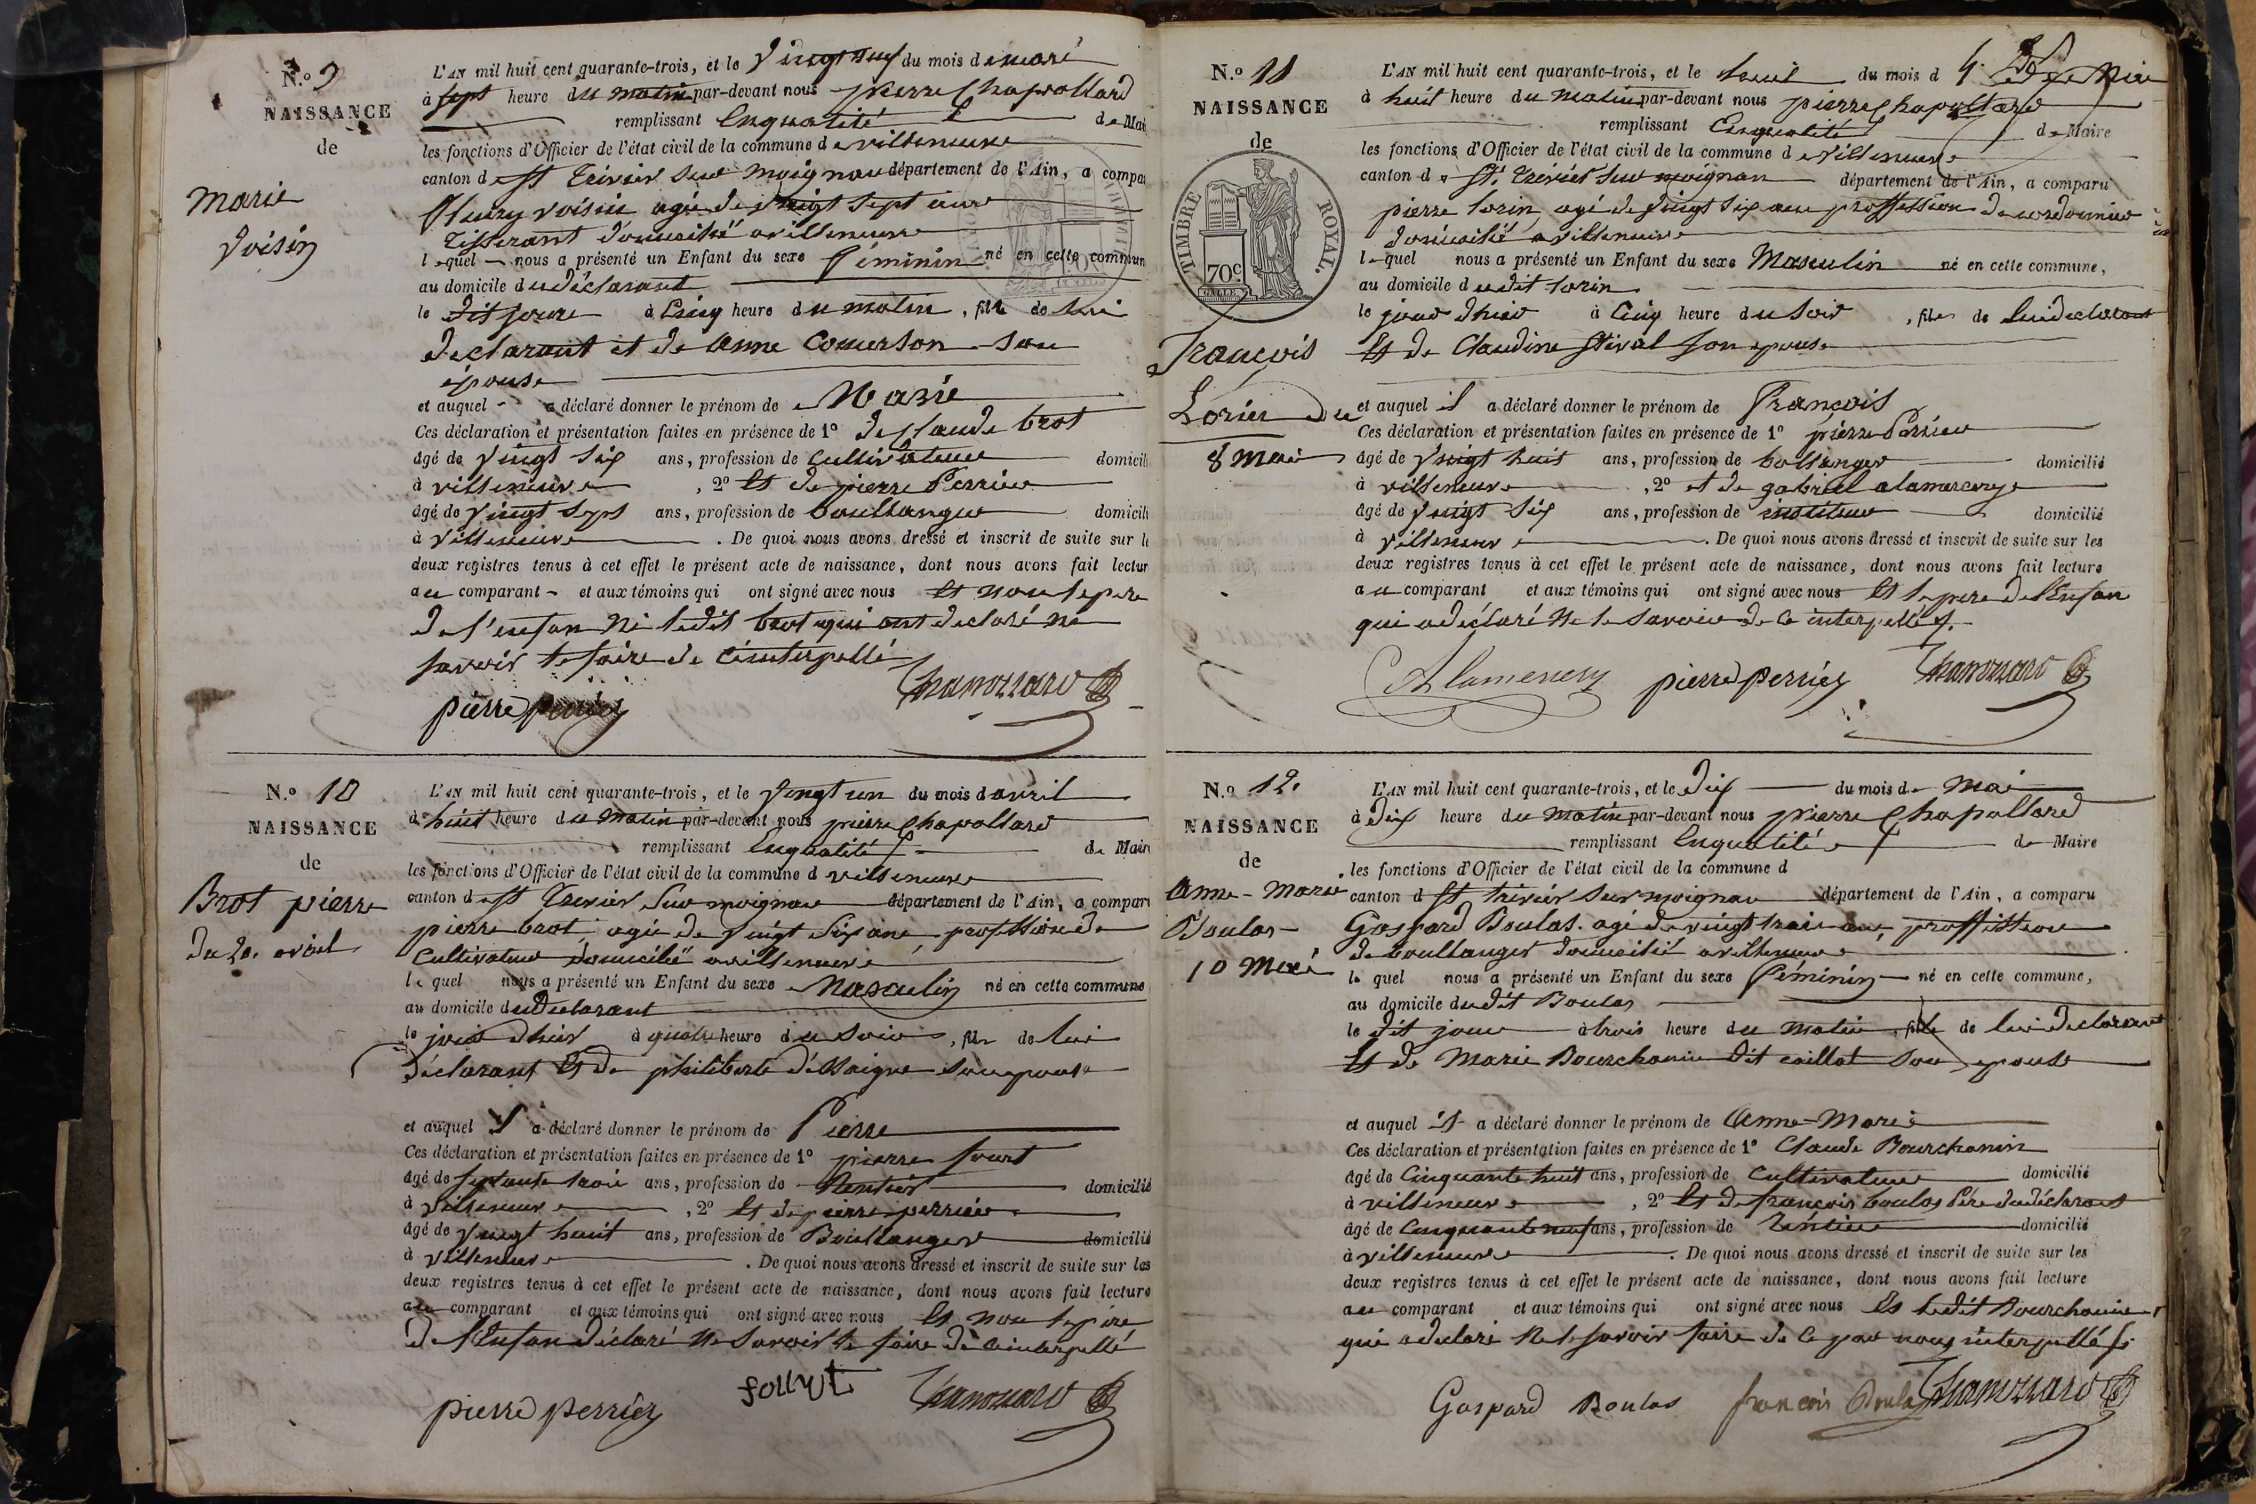 N.º 9
NAISSANCE
de
Marie
Voisin
L'AN mil huit cent quarante-trois, et le vingt neuf du mois de mars
à sept heure du matin par-devant nous pierre Chapollard
remplissant Enqualité de Mai
les fonctions d'Officier de l'état civil de la commune de villeneuve
canton de St Trivier Sur moignan département de l'Ain, a compa
fleury voisin agé de vingt sept ans
Tisserant domicilié a villeneuve
lequel nous a présenté un Enfant du sexe féminin né en cette commun
au domicile du déclarant
le dit jour à Cinq heure du matin, fille de lui
declarant et de Anne Comerson son
épouse
et auquel a déclaré donner le prénom de Marie
Ces déclaration et présentation faites en présence de 1º de Claude brot
âgé de vingt six ans, profession de cultivateur domicili
à villeneuve, 2º Et de pierre Perrier
âgé de vingt sept ans, profession de boullanger domicili
à villeneuve. De quoi nous avons dressé et inscrit de suite sur le
deux registres tenus à cet effet le présent acte de naissance, dont nous avons fait lectur
au comparant et aux témoins qui ont signé avec nous Et non le pere
de l'enfan Ni ledit brot qui ont declaré ne
savoir le faire de ce interpellé
pierre perrier
N.º 10
NAISSANCE
de
Brot pierre
du 20. avril
L'AN mil huit cent quarante-trois, et le vingt un du mois d avril
à huit heure du matin par-devant nous pierre Chapollard
remplissant Enqualité de Mair
les fonctions d'Officier de l'état civil de la commune d villeneuve
canton de St Trevier Sur moignan département de l'Ain, a compar
pierre brot agé de vingt six ans profession de
Cultivateur domicilié a villeneuve
lequel nous a présenté un Enfant du sexe Masculin né en cette commune
au domicile du Declarant
le jour dhier à quatre heure du soir, fils de lui
déclarant Et de philiberte son epouse
et auquel il a déclaré donner le prénom de Pierre
Ces déclaration et présentation faites en présence de 1º pierre
âgé de septante trois ans, profession de Rentier domicilié
à villeneuve, 2º Et de pierre perrier
âgé de vingt huit ans, profession de Boullanger domicilié
à villeneuve. De quoi nous avons dressé et inscrit de suite sur les
deux registres tenus à cet effet le présent acte de naissance, dont nous avons fait lecture
au comparant et aux témoins qui ont signé avec nous Et non le pére
de l'Enfan déclaré Ne Savoir le faire de ce interpellé
pierre perrier
N.º 11
NAISSANCE
de
TIMBRE ROYAL.
70c
François
Lorin du
8 mai
L'AN mil huit cent quarante-trois, et le huit du mois d
à huit heure du Matin par-devant nous pierre Chapollard
remplissant Enqualité de Maire
les fonctions d'Officier de l'état civil de la commune de villeneuve
canton de St. Trevier Sur moignan département de l'Ain, a comparu
pierre lorin agé de vingt six ans proffession de cordonnier
domicilié a villeneuve
lequel nous a présenté un Enfant du sexe Masculin né en cette commune,
au domicile dudit lorin
le jour dhier à Cinq heure du soir, fils de lui declarant
Et de Claudine son epouse
et auquel il a déclaré donner le prénom de François
Ces déclaration et présentation faites en présence de 1º pierre Perrier
âgé de vingt huit ans, profession de bollanger domicilié
à villeneuve, 2º et de gabriel alamercery
âgé de vingt six ans, profession de instituteur domicilié
à villeneuve. De quoi nous avons dressé et inscrit de suite sur les
deux registres tenus à cet effet le présent acte de naissance, dont nous avons fait lecture
au comparant et aux témoins qui ont signé avec nous Et le pere de l'Enfan
qui a déclaré Ne le savoir de ce interpellé
pierre perrier
N.º 12.
NAISSANCE
de
Anne-Marie
Boulas
10 Mai
L'AN mil huit cent quarante-trois, et le Dix du mois de Mai
à Dix heure du matin par-devant nous pierre Chapollard
remplissant Enqualité de Maire
les fonctions d'Officier de l'état civil de la commune d
canton d St trivier Sur moignan département de l'Ain, a comparu
Gaspard Boulas. agé de vingt trois ans, proffession
de boullanger domicilié a villeneuve
lequel nous a présenté un Enfant du sexe Féminin né en cette commune,
au domicile dudit Boulas
le dit jour à trois heure du matin, fille de lui Declarant
Et de Marie Bourchanin dit caillat son epouse
et auquel il a déclaré donner le prénom de Anne-Marie
Ces déclaration et présentation faites en présence de 1º Claude Bourchanin
âgé de Cinquante huit ans, profession de cultivateur domicilié
à villeneuve, 2º Et de françois boulas Pére du déclarant
âgé de cinquante neuf ans, profession de Rentier domicilié
à villeneuve. De quoi nous avons dressé et inscrit de suite sur les
deux registres tenus à cet effet le présent acte de naissance, dont nous avons fait lecture
au comparant et aux témoins qui ont signé avec nous Es ledit Bourchanin
qui a declaré Ne le savoir faire de ce par nous interpellé
Gaspard Boulas françois Boulas